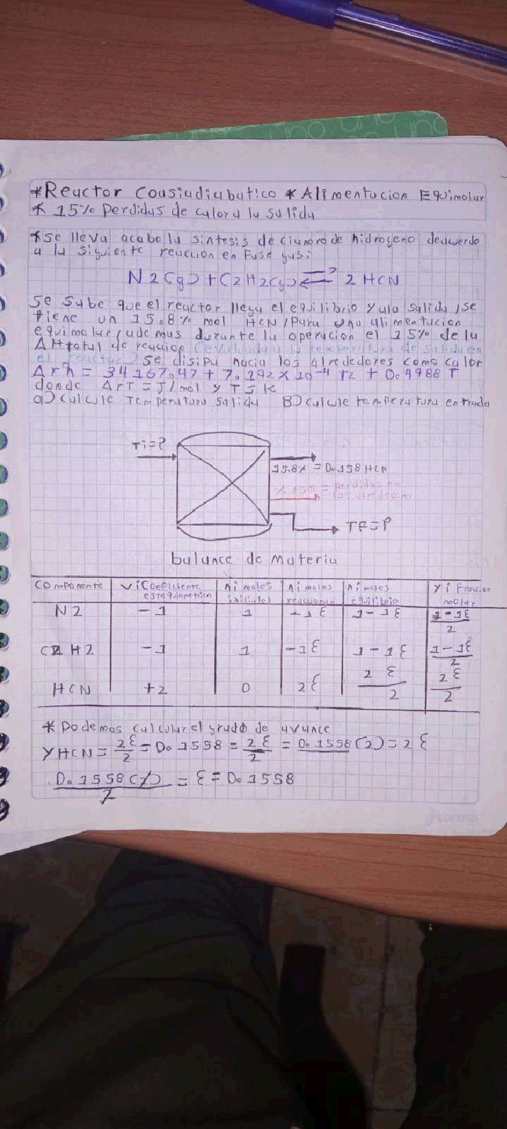 *Reactor Cousiudiabutico * Alimentacion Equimolar
* 15% Perdidas de calor a la salida
*Se lleva acabo la sintesis de cianuro de hidrogeno deacuerdo
a la siguiente reaccion en fase gas:
N2(g) + C2H2(g) ⇌ 2 HCN
Se sabe que el reactor llega el equilibrio y a la salida, se
tiene un 15.8% mol HCN, Para una alimentacion
equimolar, ademas durante la operacion el 15% de la
ΔHtotal de reaccion (evaluada a la temperatura de salida en
el reactor) se disipa hacia los alrededores como calor
Δrh = 34167.47 + 7.192 x 10⁻⁴ T2 + 0.9988 T
donde ΔrT = J/mol y T = K
a) calcule Temperatura salida B) calcule temperatura entrada
Ti=?
15.8% = 0.158 HCN
= perdidas en
los alrededores
TF=?
balance de materia
componente Vi Coeficiente estequiometrico ni moles iniciales ni moles reaccionan ni moles equilibrio Yi Fraccion molar
N2 -1 1 -1ε 1-1ε 1-1ε/2
C2H2 -1 1 -1ε 1-1ε 1-1ε/2
HCN +2 0 2ε 2ε/2 2ε/2
* Podemos calcular el grado de avance
YHCN = 2ε/2 = 0.1558 = 2ε/2 = 0.1558(2) = 2ε
0.1558(2)/2 = ε = 0.1558